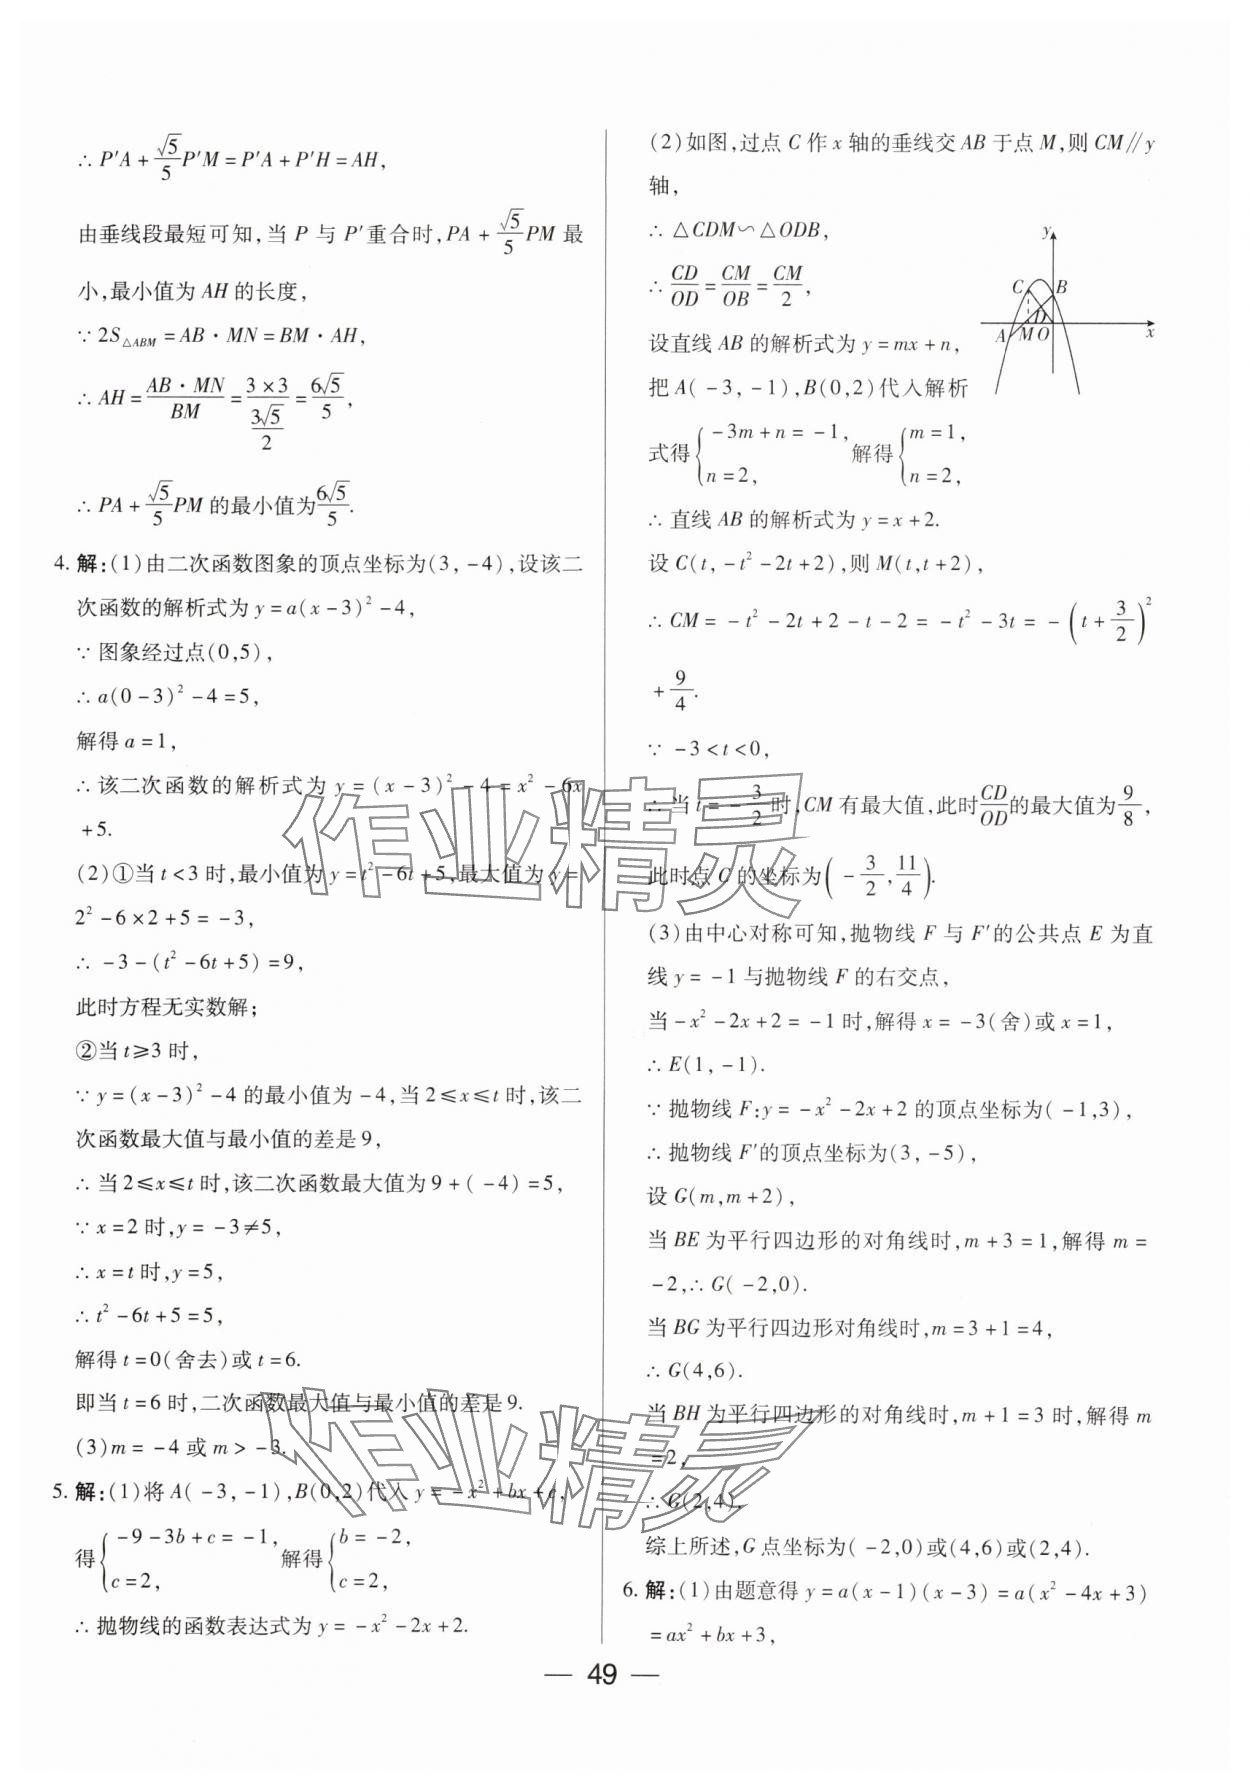 ∴ P′A + √5/5 P′M = P′A + P′H = AH,
由垂线段最短可知,当 P 与 P′重合时,PA + √5/5 PM 最
小,最小值为 AH 的长度,
∵ 2S△ABM = AB · MN = BM · AH,
∴ AH = (AB · MN)/BM = (3 × 3)/(3√5/2) = 6√5/5,
∴ PA + √5/5 PM 的最小值为 6√5/5.
4. 解:(1)由二次函数图象的顶点坐标为(3, -4),设该二
次函数的解析式为 y = a(x - 3)² - 4,
∵ 图象经过点(0,5),
∴ a(0 - 3)² - 4 = 5,
解得 a = 1,
∴ 该二次函数的解析式为 y = (x - 3)² - 4 = x² - 6x
+5.
(2)①当 t < 3 时,最小值为 y = t² - 6t + 5,最大值为 y =
2² - 6 × 2 + 5 = -3,
∴ -3 - (t² - 6t + 5) = 9,
此时方程无实数解;
②当 t ≥ 3 时,
∵ y = (x - 3)² - 4 的最小值为 -4,当 2 ≤ x ≤ t 时,该二
次函数最大值与最小值的差是 9,
∴ 当 2 ≤ x ≤ t 时,该二次函数最大值为 9 + (-4) = 5,
∵ x = 2 时,y = -3 ≠ 5,
∴ x = t 时,y = 5,
∴ t² - 6t + 5 = 5,
解得 t = 0(舍去)或 t = 6.
即当 t = 6 时,二次函数最大值与最小值的差是 9.
(3)m = -4 或 m > -3.
5. 解:(1)将 A(-3, -1),B(0,2)代入 y = -x² + bx + c,
得{-9 - 3b + c = -1, c = 2, 解得{b = -2, c = 2,
∴ 抛物线的函数表达式为 y = -x² - 2x + 2.
(2)如图,过点 C 作 x 轴的垂线交 AB 于点 M,则 CM∥y
轴,
∴ △CDM∽△ODB,
∴ CD/OD = CM/OB = CM/2,
设直线 AB 的解析式为 y = mx + n,
把 A(-3, -1),B(0,2)代入解析
式得{-3m + n = -1, n = 2, 解得{m = 1, n = 2,
∴ 直线 AB 的解析式为 y = x + 2.
设 C(t, -t² - 2t + 2),则 M(t,t + 2),
∴ CM = -t² - 2t + 2 - t - 2 = -t² - 3t = -(t + 3/2)²
+ 9/4.
∵ -3 < t < 0,
∴ 当 t = -3/2 时,CM 有最大值,此时 CD/OD 的最大值为 9/8,
此时点 C 的坐标为(-3/2, 11/4).
(3)由中心对称可知,抛物线 F 与 F′的公共点 E 为直
线 y = -1 与抛物线 F 的右交点,
当 -x² - 2x + 2 = -1 时,解得 x = -3(舍)或 x = 1,
∴ E(1, -1).
∵ 抛物线 F:y = -x² - 2x + 2 的顶点坐标为(-1,3),
∴ 抛物线 F′的顶点坐标为(3, -5),
设 G(m,m + 2),
当 BE 为平行四边形的对角线时,m + 3 = 1,解得 m =
-2,∴ G(-2,0).
当 BG 为平行四边形对角线时,m = 3 + 1 = 4,
∴ G(4,6).
当 BH 为平行四边形的对角线时,m + 1 = 3 时,解得 m
= 2,
∴ G(2,4).
综上所述,G 点坐标为(-2,0)或(4,6)或(2,4).
6. 解:(1)由题意得 y = a(x - 1)(x - 3) = a(x² - 4x + 3)
= ax² + bx + 3,
y
C B
D
A M O x
作业精灵
作业精灵
— 49 —